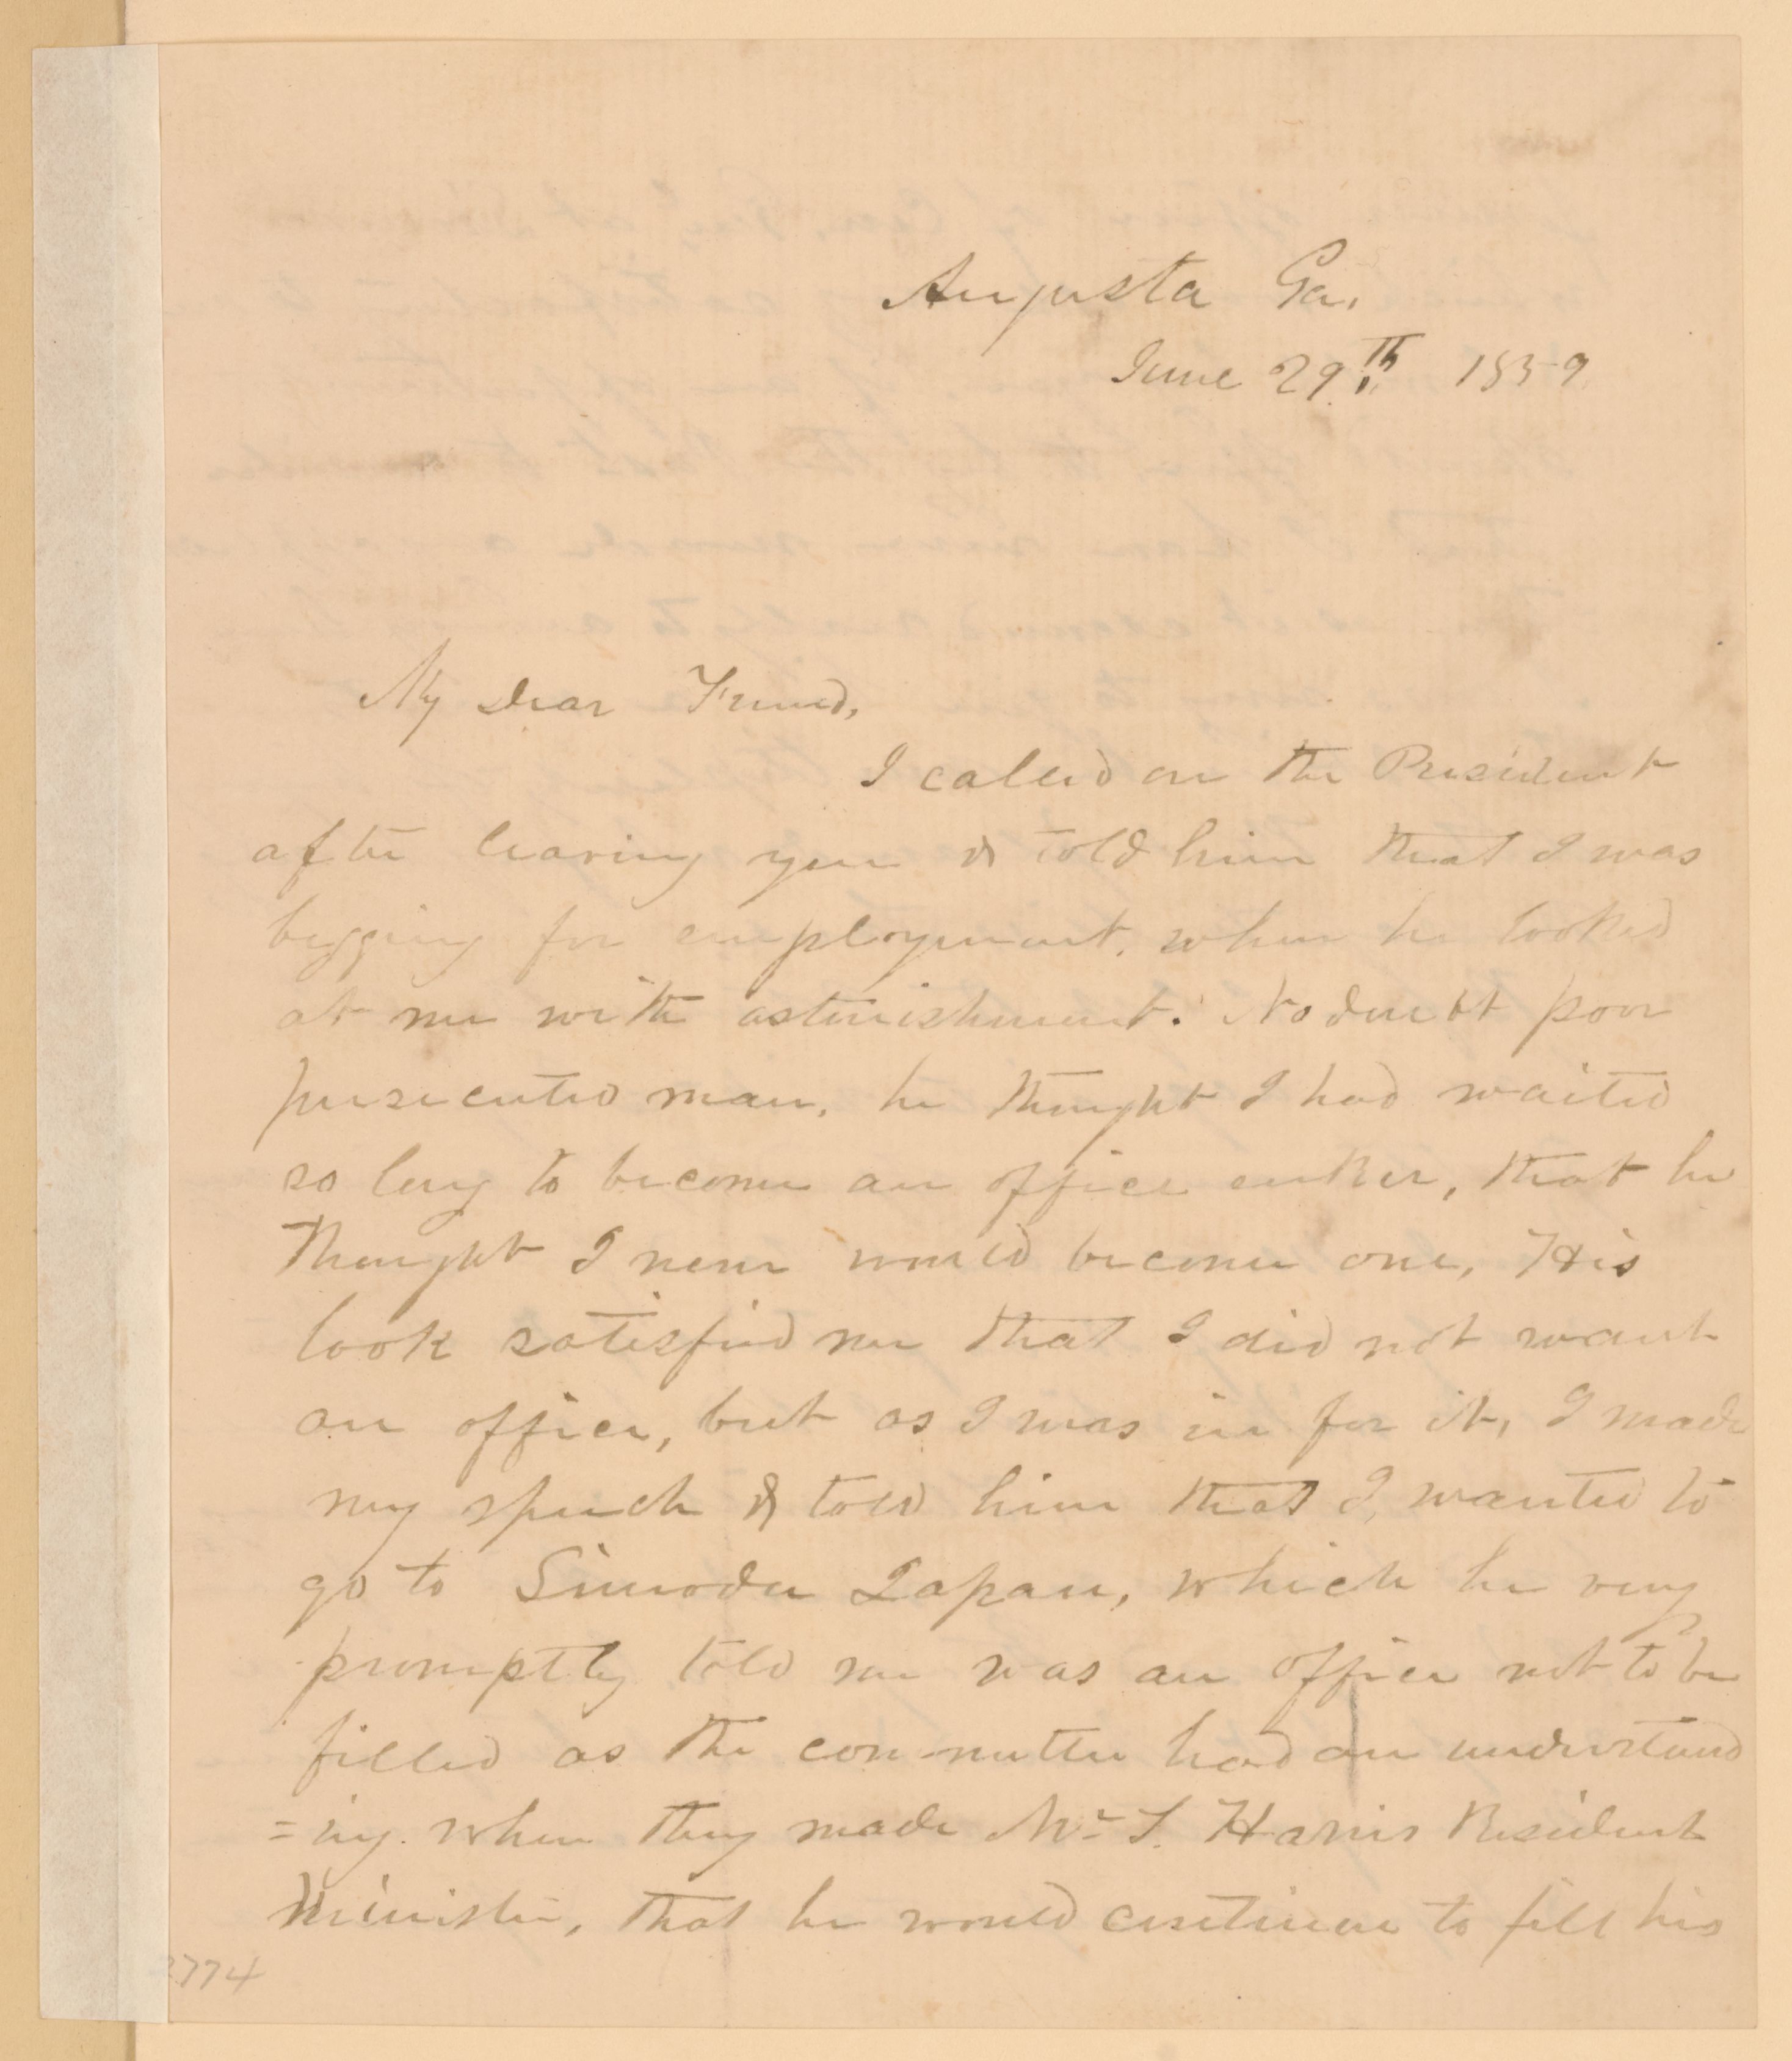 Augusta Ga.
June 29th 1859
My Dear Friend,
I called on the President
after leaving you & told him that I was
begging for employment, when he looked
at me with astonishment. No doubt poor
persecuted man, he thought I had waited
so long to become an office seeker, that he
thought I never would become one, His
look satisfied me that I did not want
an office, but as I was in for it, I made
my speech & told him that I, wanted to
go to Simoda Japan, which he very
promptly told me was an office not to be
filled as the committee had an understand
=ing when they made Mr T. Harris Resident
Minister, that he would continue to fill his
774